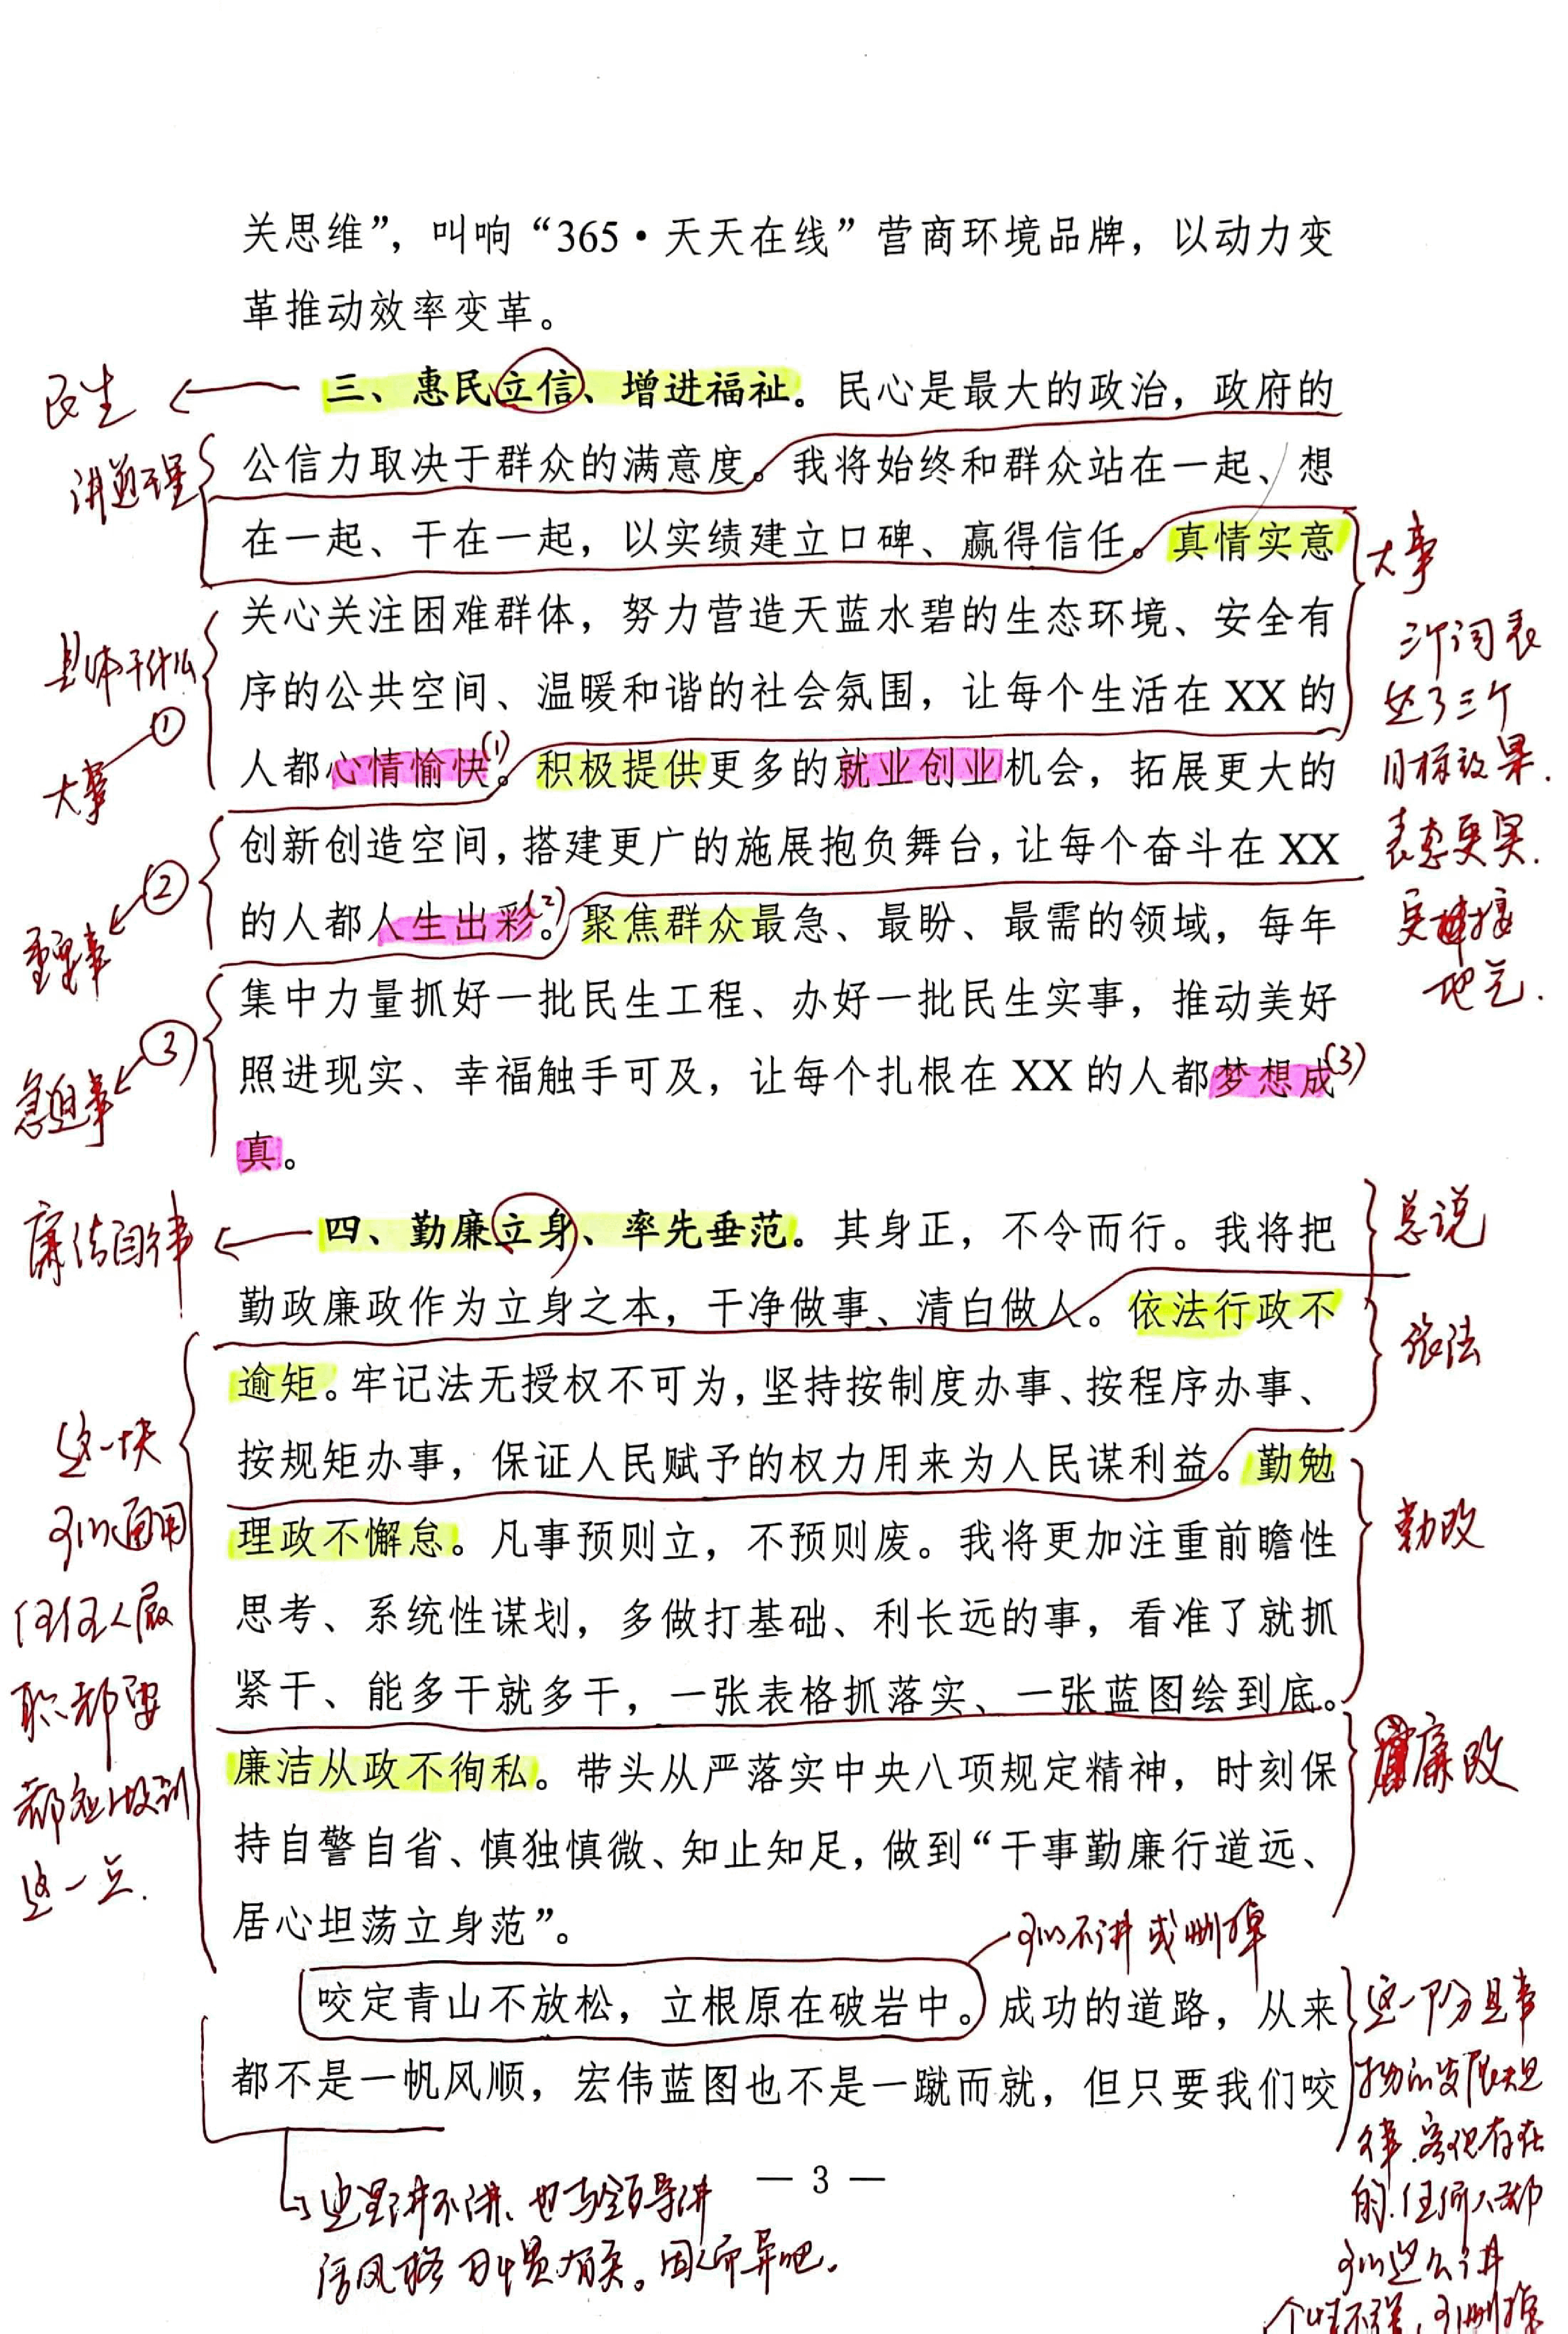 关思维”，叫响“365·天天在线”营商环境品牌，以动力变
革推动效率变革。
三、惠民立信、增进福祉。民心是最大的政治，政府的
公信力取决于群众的满意度。我将始终和群众站在一起、想
在一起、干在一起，以实绩建立口碑、赢得信任。真情实意
关心关注困难群体，努力营造天蓝水碧的生态环境、安全有
序的公共空间、温暖和谐的社会氛围，让每个生活在 XX 的
人都心情愉快(1)。积极提供更多的就业创业机会，拓展更大的
创新创造空间，搭建更广的施展抱负舞台，让每个奋斗在 XX
的人都人生出彩(2)。聚焦群众最急、最盼、最需的领域，每年
集中力量抓好一批民生工程、办好一批民生实事，推动美好
照进现实、幸福触手可及，让每个扎根在 XX 的人都梦想成(3)
真。
四、勤廉立身、率先垂范。其身正，不令而行。我将把
勤政廉政作为立身之本，干净做事、清白做人。依法行政不
逾矩。牢记法无授权不可为，坚持按制度办事、按程序办事、
按规矩办事，保证人民赋予的权力用来为人民谋利益。勤勉
理政不懈怠。凡事预则立，不预则废。我将更加注重前瞻性
思考、系统性谋划，多做打基础、利长远的事，看准了就抓
紧干、能多干就多干，一张表格抓落实、一张蓝图绘到底。
廉洁从政不徇私。带头从严落实中央八项规定精神，时刻保
持自警自省、慎独慎微、知止知足，做到“干事勤廉行道远、
居心坦荡立身范”。
咬定青山不放松，立根原在破岩中。成功的道路，从来
都不是一帆风顺，宏伟蓝图也不是一蹴而就，但只要我们咬
— 3 —
民生
讲道理
具体干什么
①
大事
②
重要事
③
急迫事
廉洁自律
这一块
可以通用
任何人履
职都要
都知
这一点.
大事
三个词表
达了三个
目标效果.
表态更实.
更接
地气.
总说
依法
勤政
廉政
可以不讲或删掉
这一部分是事
物的发展规
律.客观存在
的.任何人都
可以这么讲
可删掉
这里讲不讲、也与领导讲
话风格习惯有关。因人而异吧.